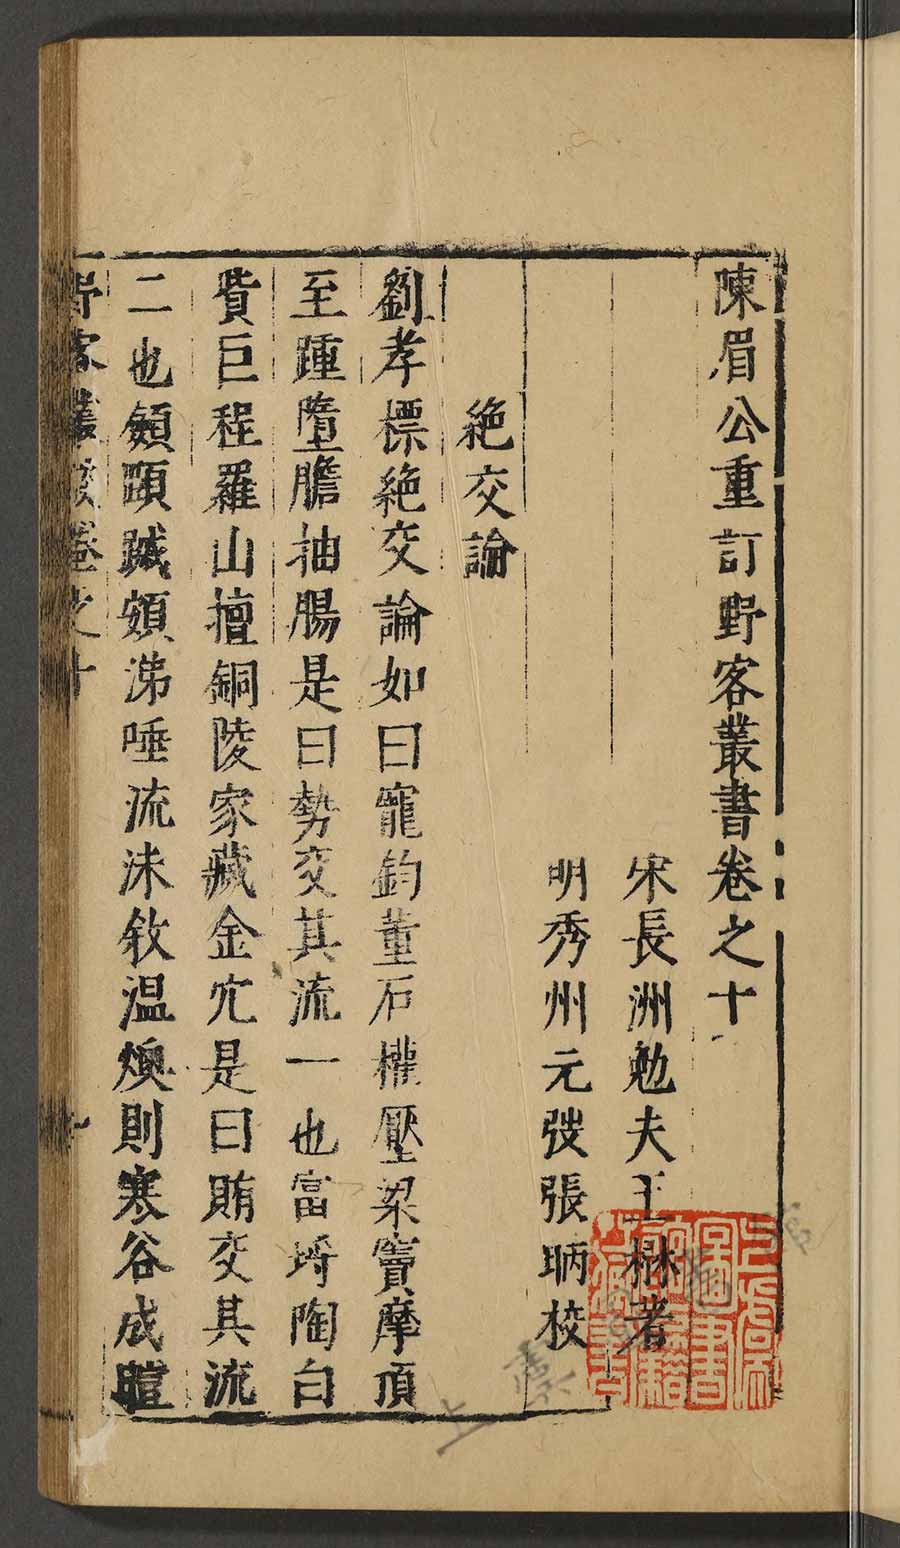 陳眉公重訂野客叢書卷之十
宋長洲勉夫王楙著
明秀州元弢張昞校
絶交論
劉孝標絶交論如曰寵鈞董石權壓梁竇摩頂
至踵隳膽抽腸是曰勢交其流一也富埒陶白
貲巨程羅山擅銅陵家藏金穴是曰賄交其流
二也頷頤蹙頞涕唾流沫敘温燠則寒谷成暄
野客叢書卷之十